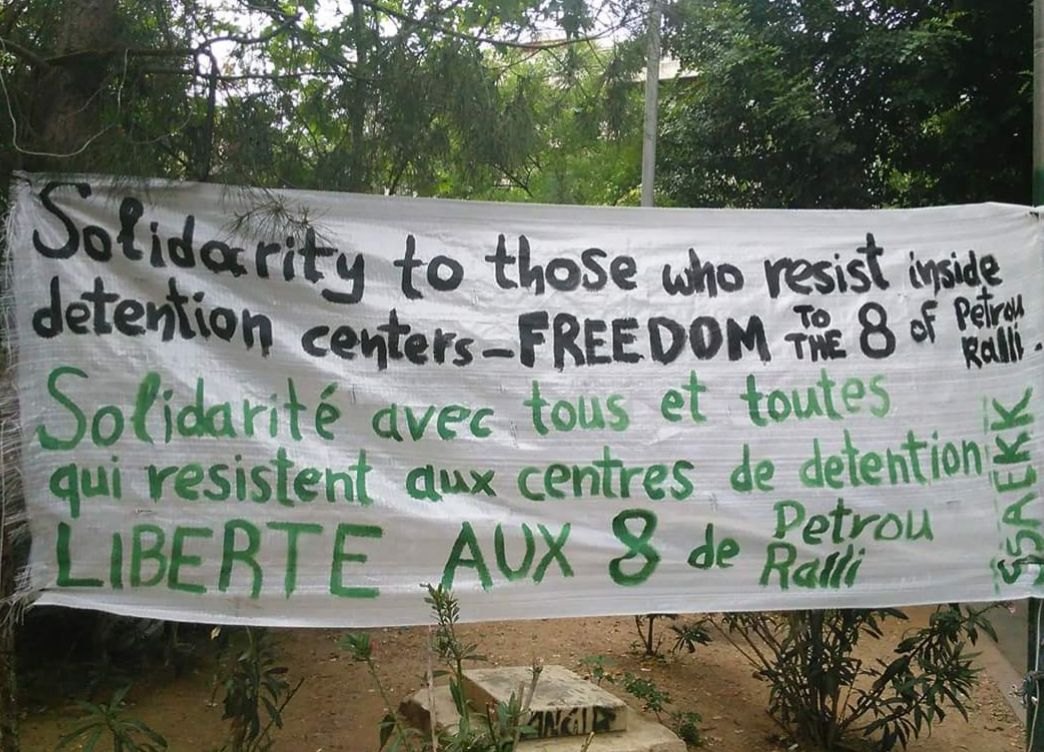 Solidarity to those who resist inside
detention centers - FREEDOM TO THE 8 of Petrou Ralli.
Solidarité avec tous et toutes
qui resistent aux centres de detention
LIBERTE AUX 8 de Petrou Ralli